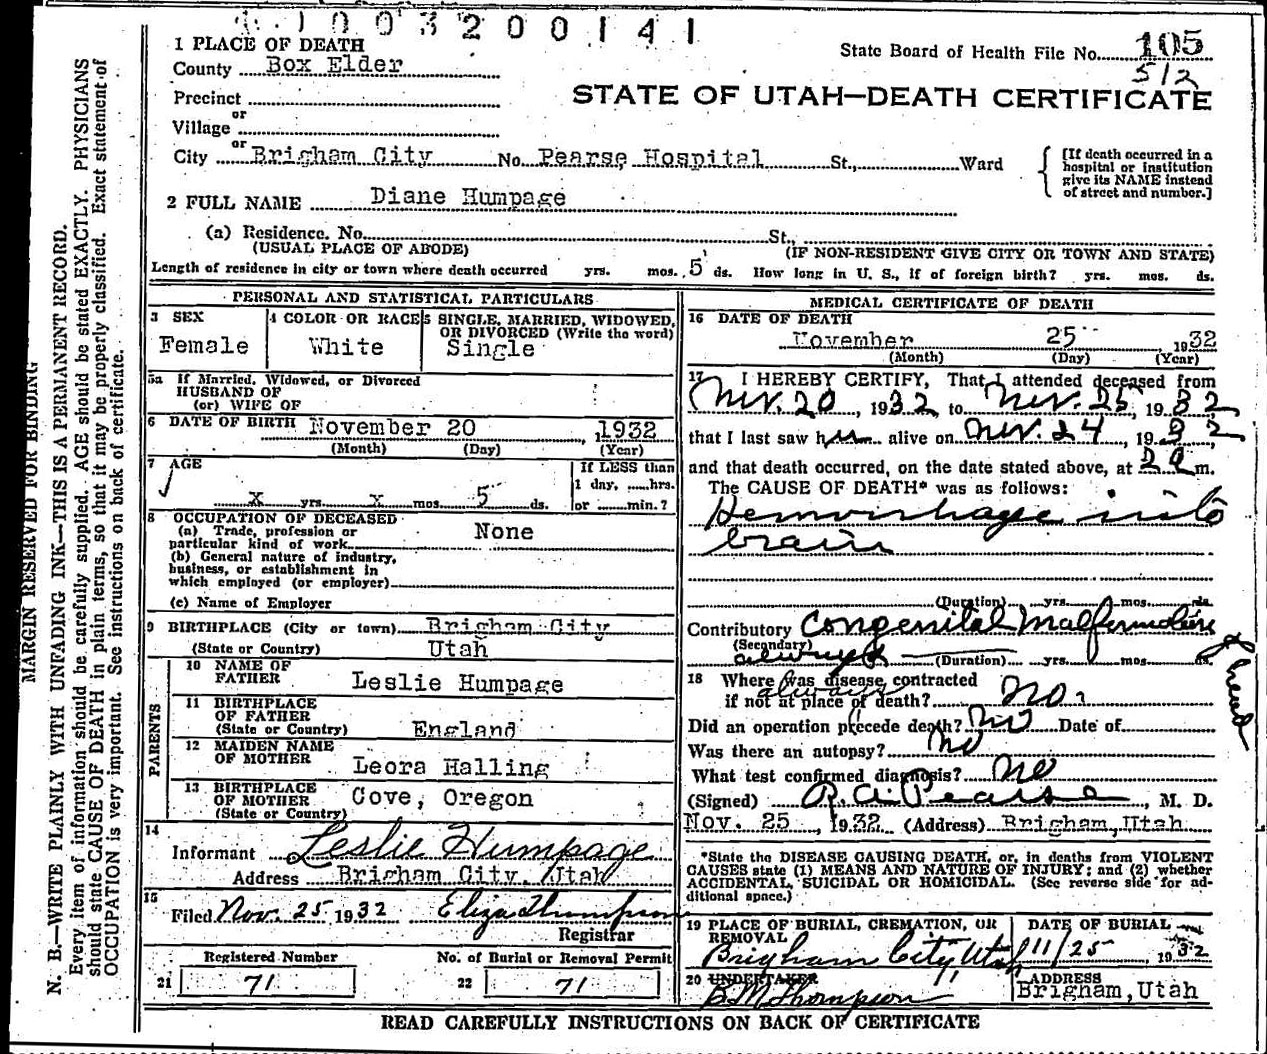 1003200141
1 PLACE OF DEATH
State Board of Health File No. 105
County Box Elder
512
STATE OF UTAH—DEATH CERTIFICATE
Precinct
or
Village
or
City Brigham City No. Pearse Hospital St., Ward
[If death occurred in a
hospital or institution
give its NAME instead
of street and number.]
2 FULL NAME Diane Humpage
(a) Residence. No. St.,
(USUAL PLACE OF ABODE) (IF NON-RESIDENT GIVE CITY OR TOWN AND STATE)
Length of residence in city or town where death occurred yrs. mos. 5 ds. How long in U. S., if of foreign birth? yrs. mos. ds.
PERSONAL AND STATISTICAL PARTICULARS
3 SEX
Female
4 COLOR OR RACE
White
5 SINGLE, MARRIED, WIDOWED,
OR DIVORCED (Write the word)
Single
5a If Married, Widowed, or Divorced
HUSBAND OF
(or) WIFE OF
6 DATE OF BIRTH November 20, 1932
(Month) (Day) (Year)
7 AGE
x yrs. x mos. 5 ds.
If LESS than
1 day, ......hrs.
or ......min.?
8 OCCUPATION OF DECEASED
(a) Trade, profession or
particular kind of work None
(b) General nature of industry,
business, or establishment in
which employed (or employer)
(c) Name of Employer
9 BIRTHPLACE (City or town) Brigham City
(State or Country) Utah
PARENTS
10 NAME OF
FATHER Leslie Humpage
11 BIRTHPLACE
OF FATHER
(State or Country) England
12 MAIDEN NAME
OF MOTHER Leora Halling
13 BIRTHPLACE
OF MOTHER
(State or Country) Cove, Oregon
14
Informant Leslie Humpage
Address Brigham City, Utah
15
Filed Nov. 25 1932 Eliza Thompson
Registrar
Registered Number
21 71
No. of Burial or Removal Permit
22 71
MEDICAL CERTIFICATE OF DEATH
16 DATE OF DEATH
November 25, 1932
(Month) (Day) (Year)
17 I HEREBY CERTIFY, That I attended deceased from
Nov. 20, 1932 to Nov. 25, 1932,
that I last saw her alive on Nov. 24, 1932,
and that death occurred, on the date stated above, at m.
The CAUSE OF DEATH* was as follows:
Hemorrhage into
brain
(Duration) yrs. mos. ds.
Contributory Congenital Malformation
of head
(Secondary)
always (Duration) yrs. mos. ds.
18 Where was disease contracted
if not at place of death? always no.
Did an operation precede death? no Date of
Was there an autopsy? no
What test confirmed diagnosis? no
(Signed) R. A. Pearse, M. D.
Nov. 25, 1932 (Address) Brigham, Utah
*State the DISEASE CAUSING DEATH, or, in deaths from VIOLENT
CAUSES state (1) MEANS AND NATURE OF INJURY; and (2) whether
ACCIDENTAL, SUICIDAL OR HOMICIDAL. (See reverse side for ad-
ditional space.)
19 PLACE OF BURIAL, CREMATION, OR
REMOVAL
Brigham City, Utah
DATE OF BURIAL
11/25 1932
20 UNDERTAKER
B M Thompson
ADDRESS
Brigham, Utah
READ CAREFULLY INSTRUCTIONS ON BACK OF CERTIFICATE
MARGIN RESERVED FOR BINDING
N. B.—WRITE PLAINLY WITH UNFADING INK—THIS IS A PERMANENT RECORD.
Every item of information should be carefully supplied. AGE should be stated EXACTLY. PHYSICIANS
should state CAUSE OF DEATH in plain terms, so that it may be properly classified. Exact statement of
OCCUPATION is very important. See instructions on back of certificate.